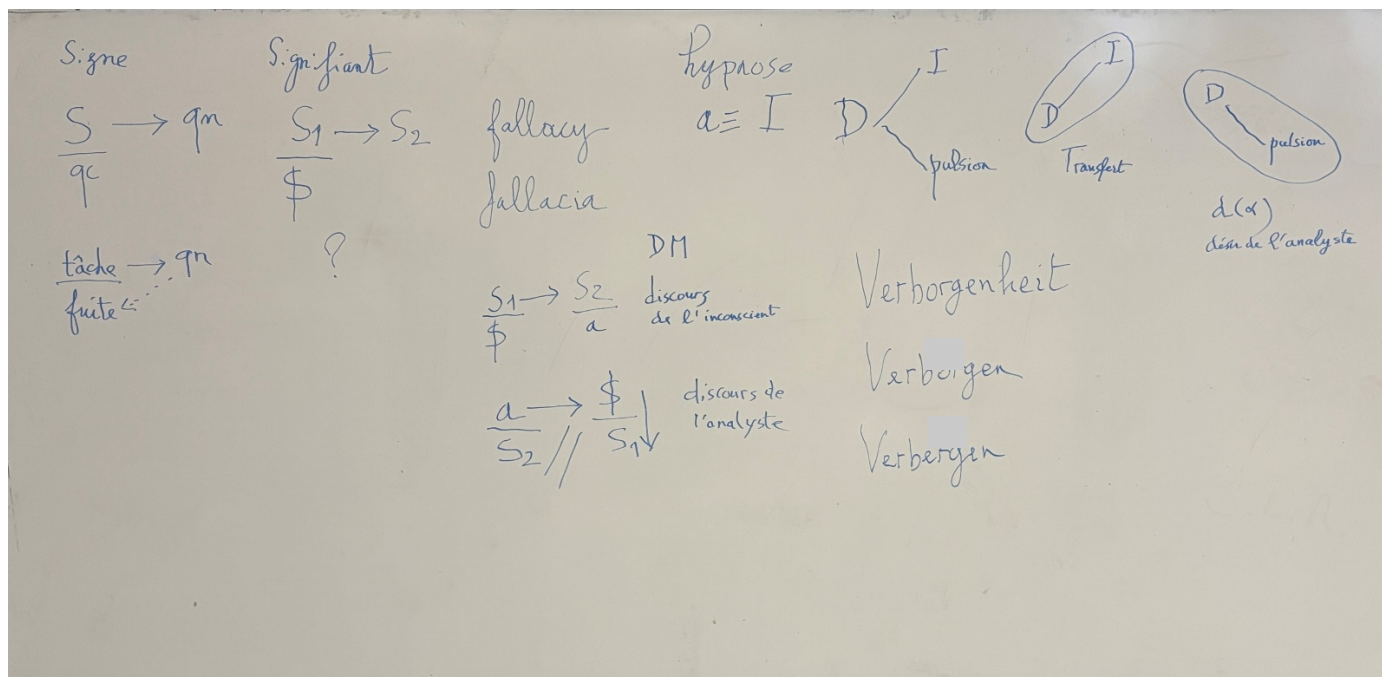 Signe
S → qn
qc
tâche → qn
fuite
Signifiant
S1 → S2
$
?
fallacy
fallacia
DM
S1 → S2
$ a
discours
de l'inconscient
a → $
S2 // S1 ↓
discours de
l'analyste
hypnose
a ≡ I
D
I
pulsion
I
D
Transfert
D
pulsion
d(α)
désir de l'analyste
Verborgenheit
Verborgen
Verbergen